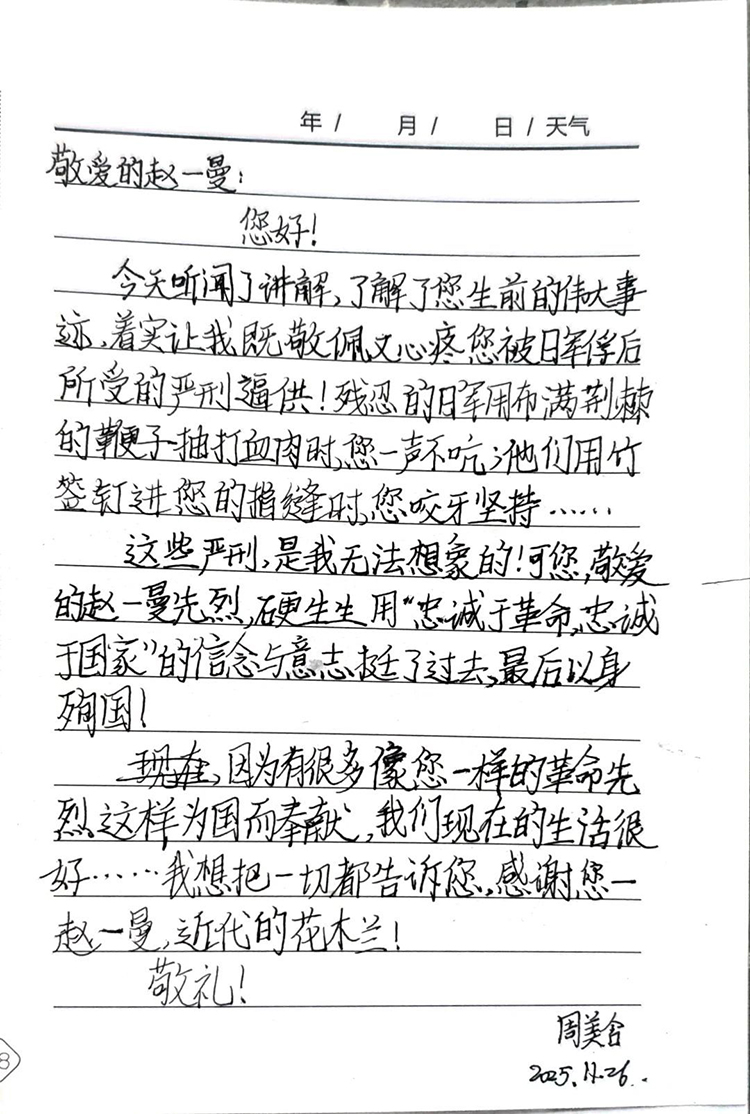 年/ 月/ 日/天气
敬爱的赵一曼：
您好！
今天听闻了讲解，了解了您生前的伟大事
迹，着实让我既敬佩又心疼您被日军俘后
所受的严刑逼供！残忍的日军用布满荆棘
的鞭子抽打血肉时，您一声不吭；他们用竹
签钉进您的指缝时，您咬牙坚持……
这些严刑，是我无法想象的！可您，敬爱
的赵一曼先烈，硬生生用“忠诚于革命，忠诚
于国家”的信念与意志挺了过去，最后以身
殉国！
现在，因为有很多像您一样的革命先
烈这样为国而奉献，我们现在的生活很
好……我想把一切都告诉您，感谢您—
赵一曼，近代的花木兰！
敬礼！
周美含
2025.11.26.
8